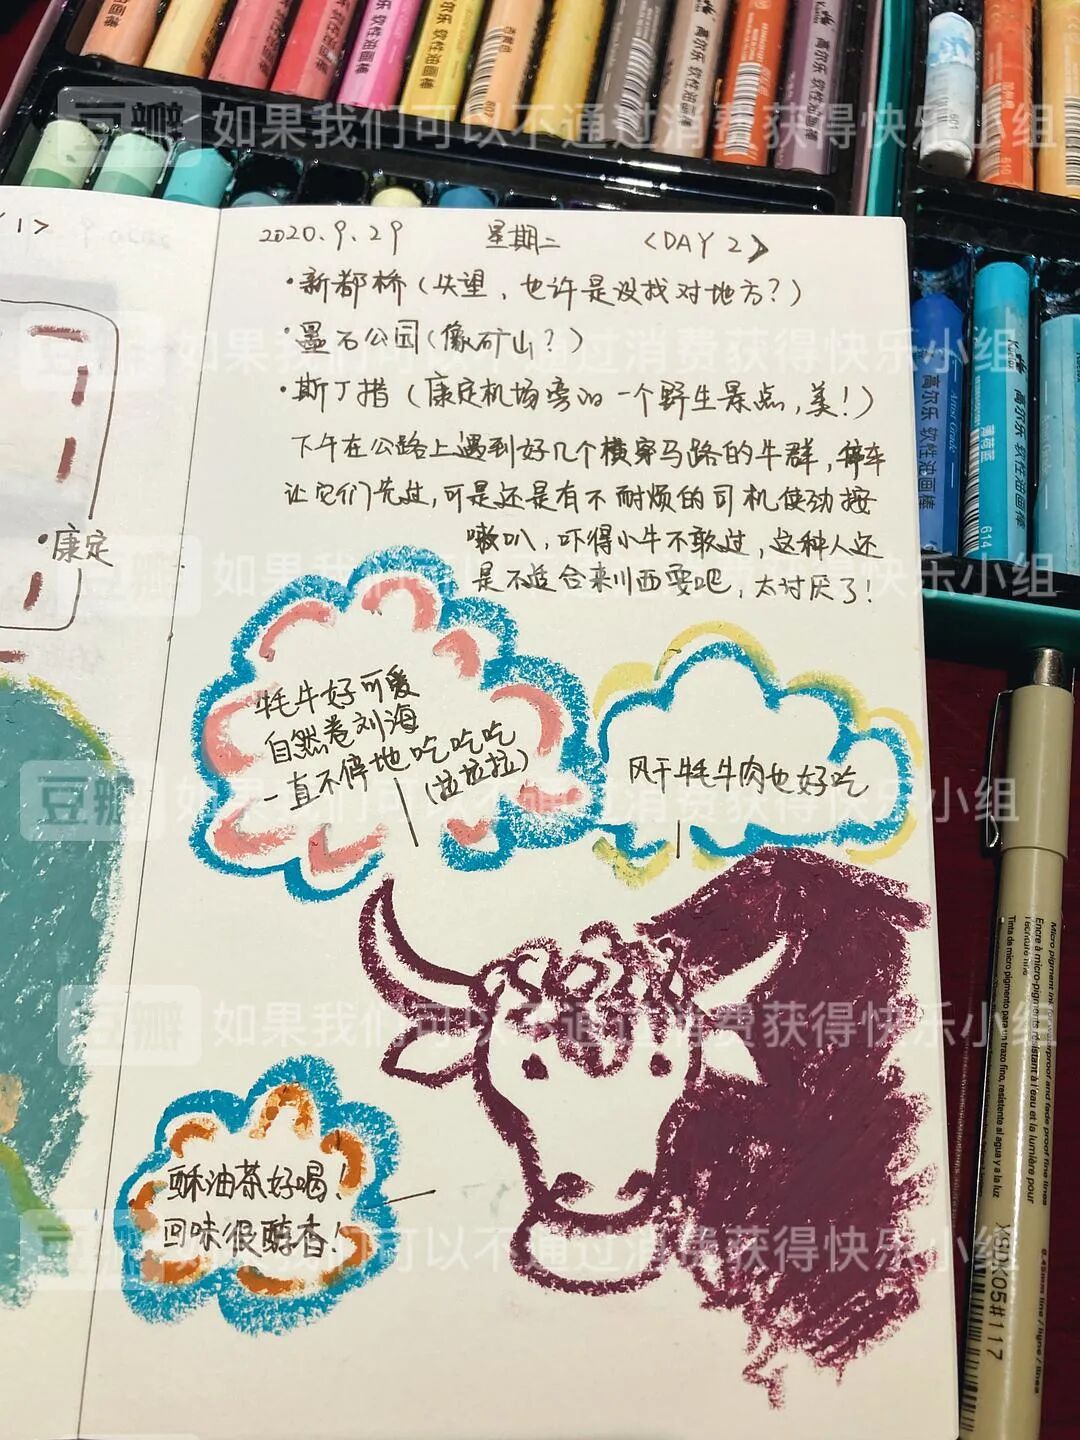 高尔乐 软性油画棒
高尔乐 软性油画棒
高尔乐 软性油画棒
高尔乐 软性油画棒
607
601
616
豆瓣 如果我们可以不通过消费获得快乐小组
1>
2020.9.29 星期二 <DAY 2>
·新都桥(失望,也许是没找对地方?)
·墨石公园(像矿山?)
豆瓣 如果我们可以不通过消费获得快乐小组
·斯丁措(康定机场旁的一个野生景点,美!)
下午在公路上遇到好几个横穿马路的牛群,停车
让它们先过,可是还是有不耐烦的司机使劲按
喇叭,吓得小牛不敢过,这种人还
是不适合来川西耍吧,太讨厌了!
·康定
豆瓣 如果我们可以不通过消费获得快乐小组
高尔乐 软性油画棒
Artist Grade
高尔乐 软性油画棒
薄荷蓝
614
牦牛好可爱
自然卷刘海
一直不停地吃吃吃
(拉拉拉)
风干牦牛肉也好吃
豆瓣 如果我们可以不通过消费获得快乐小组
豆瓣 如果我们可以不通过消费获得快乐小组
酥油茶好喝!
回味很醇香!
豆瓣 如果我们可以不通过消费获得快乐小组
XSDK05#117
0.45mm line / ligne / línea